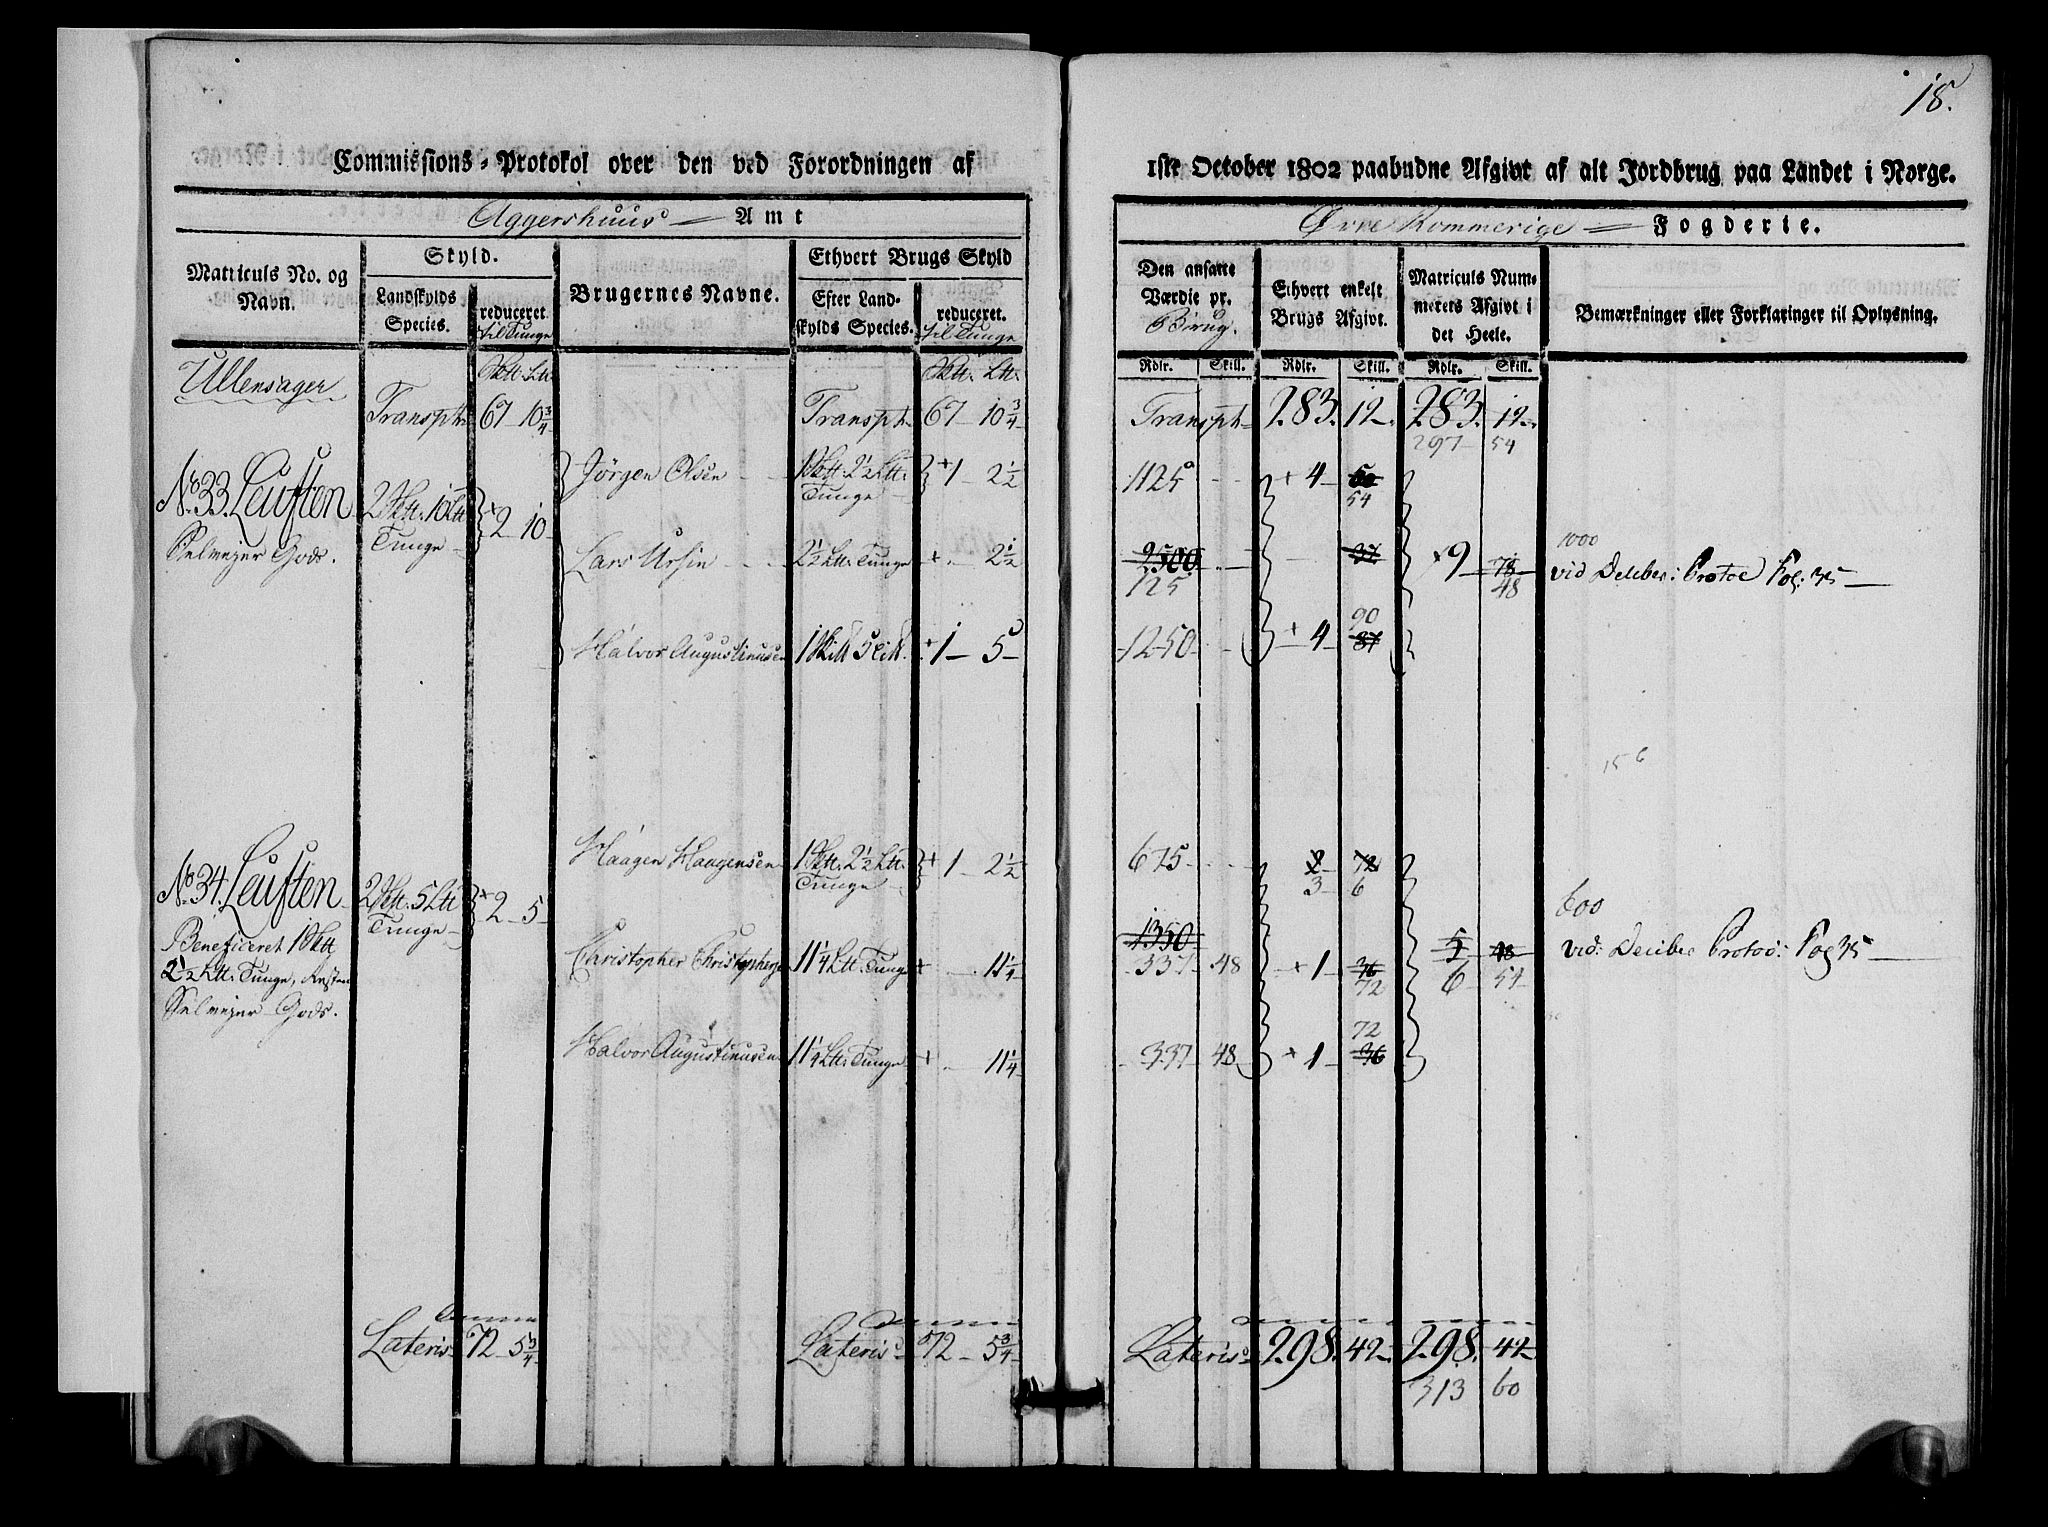 18.
Commissions-Protokol over den ved Forordningen af 1ste October 1802 paabudne Afgivt af alt Jordbrug paa Landet i Norge.
Aggershuus Amt
Øvre Rommerige Fogderie.
Matriculs No. og Navn.
Skyld.
Landskylds Species.
reduceret. til Tunge
Brugernes Navne.
Ethvert Brugs Skyld
Efter Landskylds Species.
reduceret. til Tunge
Den ansatte Værdie pr. Brug.
Ethvert enkelt Brugs Afgivt.
Matriculs Nummerets Afgivt i det Heele.
Bemærkninger eller Forklaringer til Oplysning.
Rdlr. Skill. Rdlr. Skill. Rdlr. Skill.
Ullensager
Transpt. 67 10 3/4 Transpt. 67 10 3/4 Transpt. 283. 12. 283. 12.
297 54
No. 33. Leuften 2 Skt. 10 Lt. Tunge + 2 10
Selmejer Gods.
Jörgen Olsen 1 Skt. 2 1/2 Lt. Tunge + 1 2 1/2 1125 + 4 60
54
Lars Ursin 2 1/2 Lt. Tunge + 2 1/2 2500 37 + 9 78
125 48
1000
vid Deliber: Protoc Fol: 35
Halvor Augustinusen 1 Skt 5 Lt. + 1 5 1250 + 4 87
90
15 6
No. 34. Leuften 2 Skt. 5 Lt. Tunge + 2 5
Beneficeret 1 Skt.
2 1/2 Lt. Tunge, Resten
Selmejer Gods.
Haagen Haagensen 1 Skt. 2 1/2 Lt. Tunge + 1 2 1/2 675 2 72
3 6
Christopher Christophersen 11 1/4 Lt. Tunge + 11 1/4 1350 5 48
337 48 + 1 36 6 54
72
600
vid: Deliber Protoc: Fol 35
Halvor Augustinusen 11 1/4 Lt. Tunge + 11 1/4 337 48 + 1 36
72
Lateris 72 5 3/4 Lateris 72 5 3/4 Lateris 298. 42 298. 42
313 60